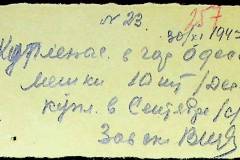 № 23
257
30/XI 194
Куплено в гор Одес
мешки 10 шт /Дес
купл. в Сентябр
Зав ск